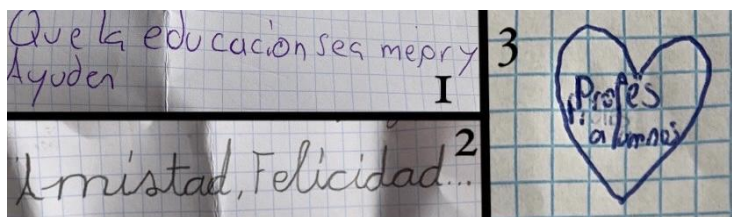 Que la educación sea mejor y
Ayuden
I
Amistad, Felicidad...
2
3
Profes
alumnos